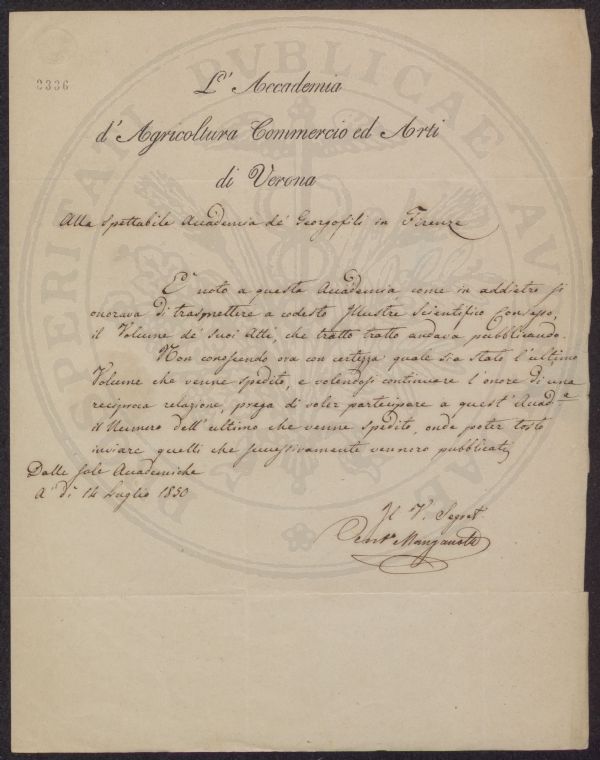 2336
L' Accademia
d' Agricoltura Commercio ed Arti
di Verona
Alla Spettabile Accademia de' Georgofili in Firenze
E' noto a questa Accademia come in addietro si
onorava di trasmettere a codesto Illustre Scientifico Consesso,
il Volume de' suoi Atti, che tratto tratto andava pubblicando.
Non conoscendo ora con certezza quale sia stato l'ultimo
Volume che venne spedito, e volendosi continuare l'onore di una
reciproca relazione, prega di voler partecipare a quest' Accad.a
il Numero dell' ultimo che venne spedito, onde poter tosto
inviare quelli che successivamente vennero pubblicati
Dalle Sale Accademiche
A' dì 14 Luglio 1850
Il V. Segret.
Manganotti
PUBLICAE